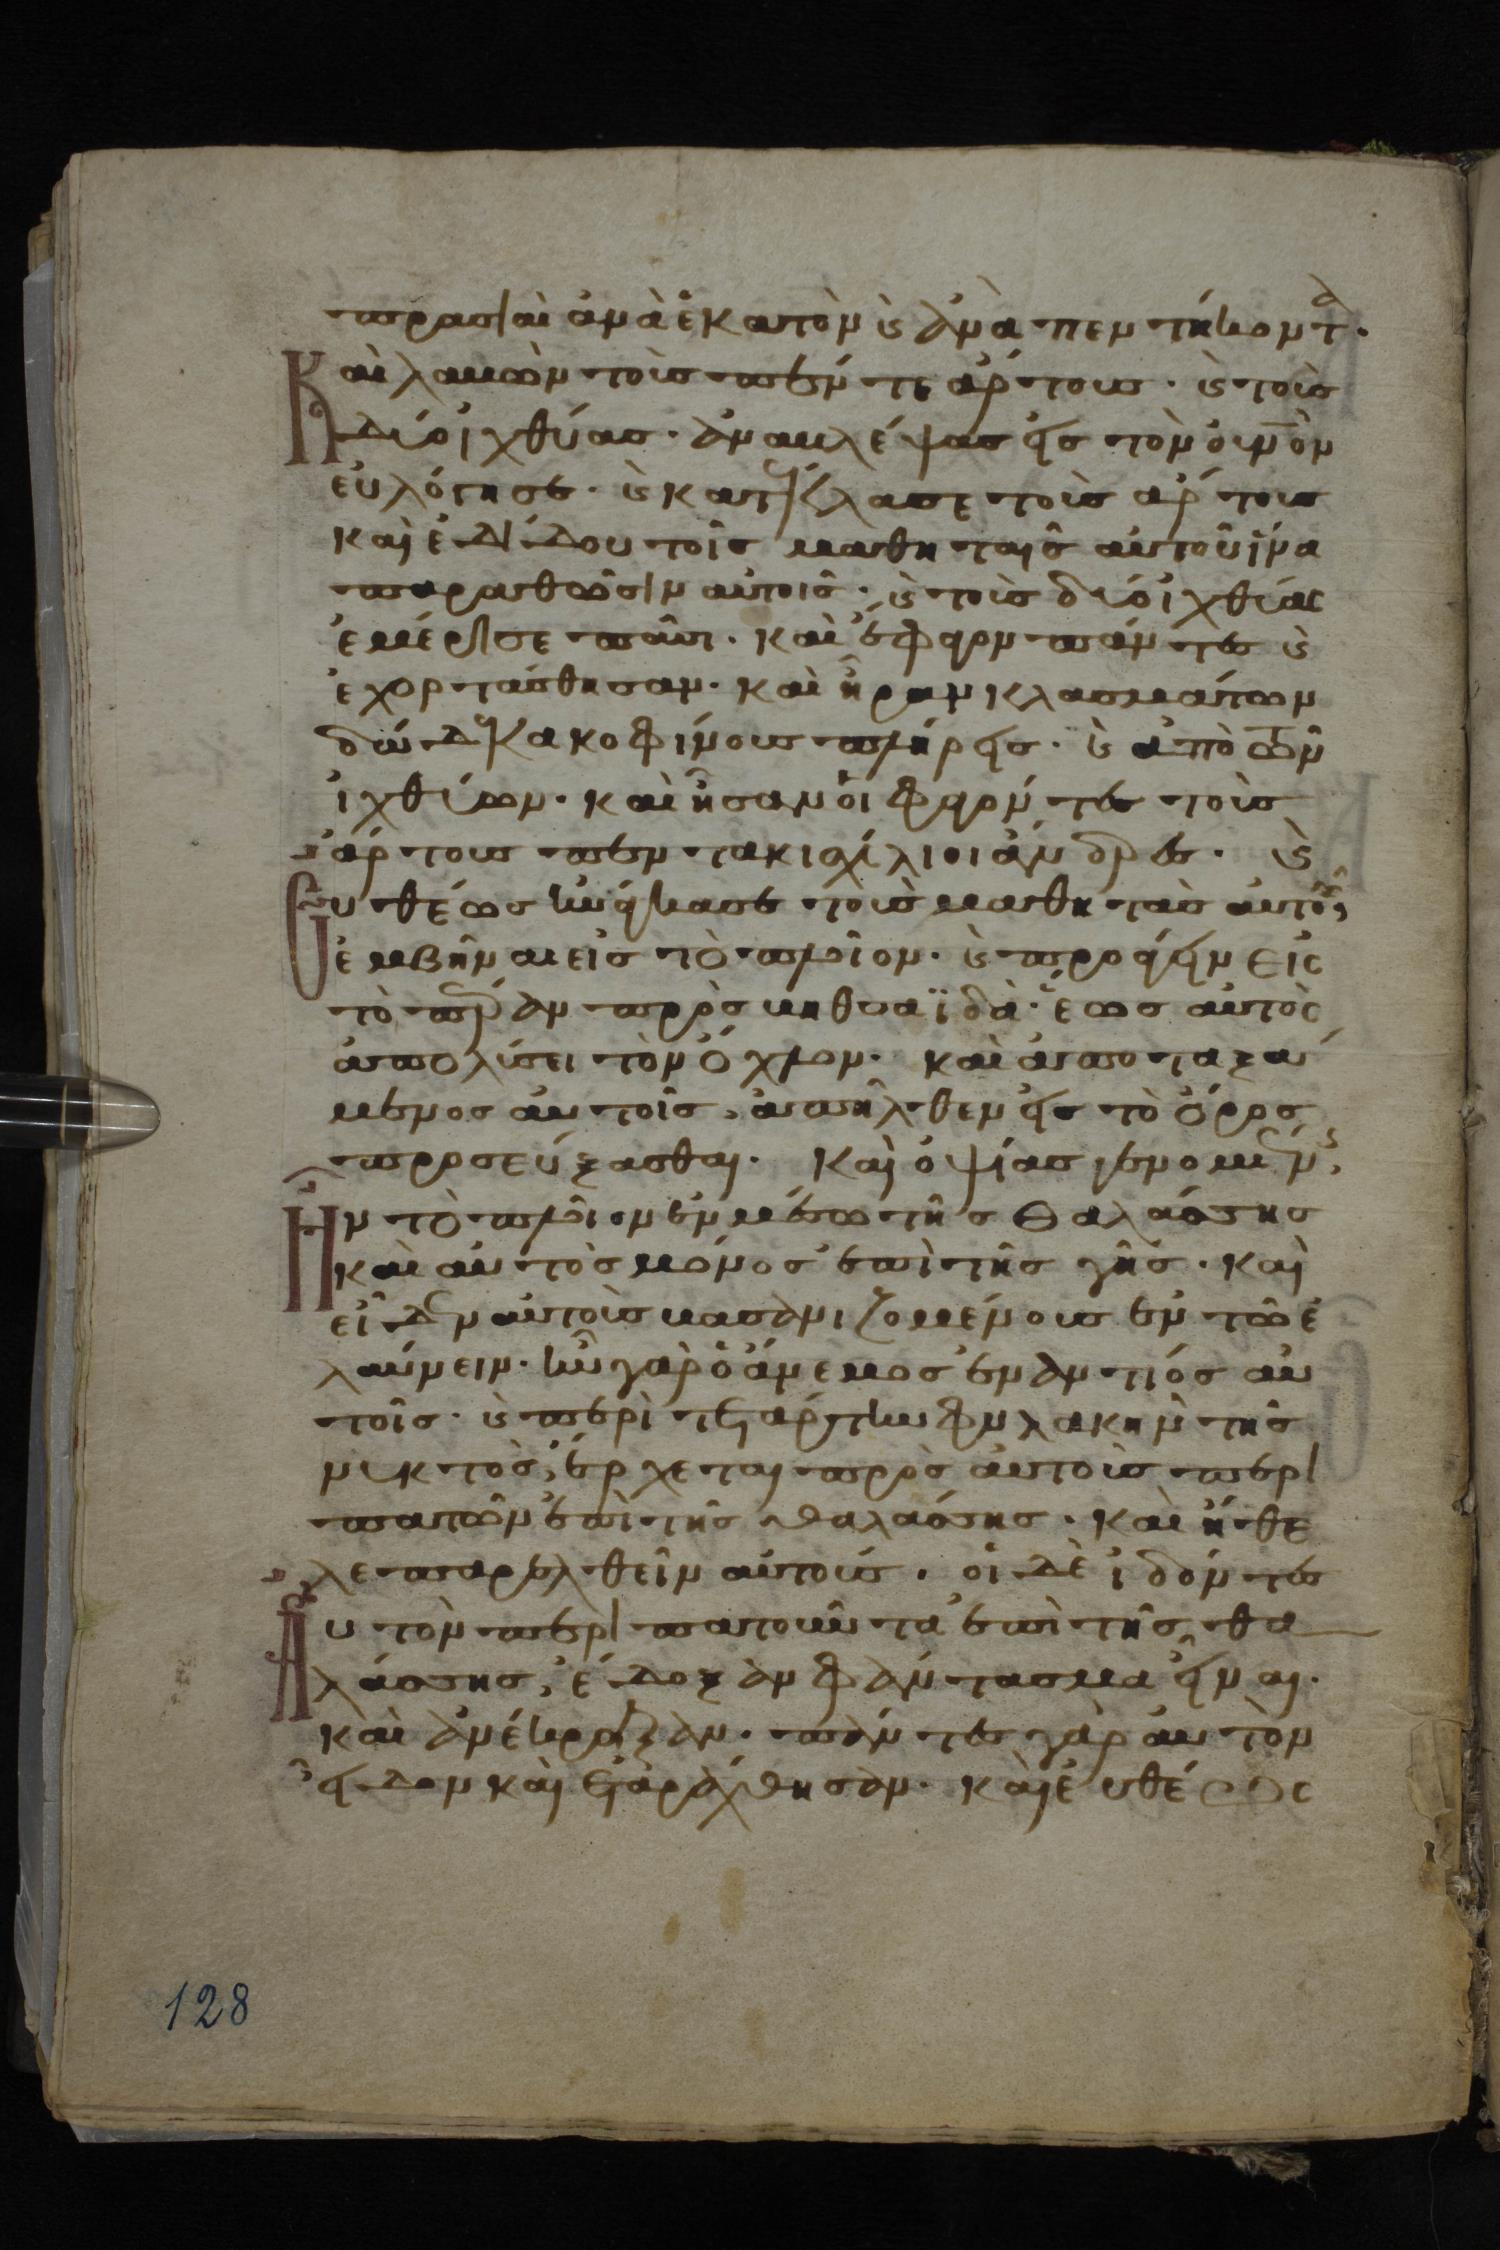 πρασϊαὶ ἀνὰ ἑκατὸν ϗ ἀνὰ πεντήκοντα.
Καὶ λαβὼν τοὺς πέντε ἄρτους. ϗ τοὺς
δύο ἰχθύας. ἀναβλέψας εἰς τὸν οὐνὸν
εὐλόγησε. ϗ κατέκλασε τοὺς ἄρτους
καὶ ἐδίδου τοῖς μαθηταῖς αὐτοῦ ἵνα
παραθῶσιν αὐτοῖς. ϗ τοὺς δύο ἰχθύας
ἐμέρισε πᾶσι. καὶ ἔφαγον πάντες ϗ
ἐχορτάσθησαν. καὶ ἦραν κλασμάτων
δώδεκα κοφίνους πλήρεις. ϗ ἀπὸ τῶν
ἰχθύων. καὶ ἦσαν οἱ φαγόντες τοὺς
ἄρτους πεντακισχίλιοι ἄνδρες. ϗ
Εὐθέως ἠνάγκασε τοὺς μαθητὰς αὐτοῦ,
ἐμβῆναι εἰς τὸ πλοῖον. ϗ προάγειν εἰς
τὸ πέραν πρὸς βηθσαϊδὰ. ἕως αὐτὸς
ἀπολύσει τὸν ὄχλον. καὶ ἀποταξά
μενος αὐτοῖς, ἀπῆλθεν εἰς τὸ ὄρος
προσεύξασθαι. Καὶ ὀψίας γενομένης,
Ἦν τὸ πλοῖον ἐν μέσω τῆς θαλάσσης
καὶ αὐτὸς μόνος ἐπὶ τῆς γῆς. καὶ
εἶδεν αὐτοὺς βασανιζομένους ἐν τῶ ἐ
λαύνειν. ἦν γὰρ ὁ ἄνεμος ἐναντιός αὐ
τοῖς. ϗ περὶ τετάρτην φυλακὴν τῆς
νυκτὸς, ἔρχεται πρὸς αὐτοὺς περι
πατῶν ἐπὶ τῆς θαλάσσης. καὶ ἤθε
λε παρελθεῖν αὐτούς. οἱ δὲ ἰδόντες
Αὐτὸν περιπατοῦντα ἐπὶ τῆς θα
λάσσης, ἔδοξαν φάντασμα εἶναι.
καὶ ἀνέκραξαν. πάντες γὰρ αὐτὸν
εἶδον καὶ ἐταράχθησαν. καὶ εὐθέως
128